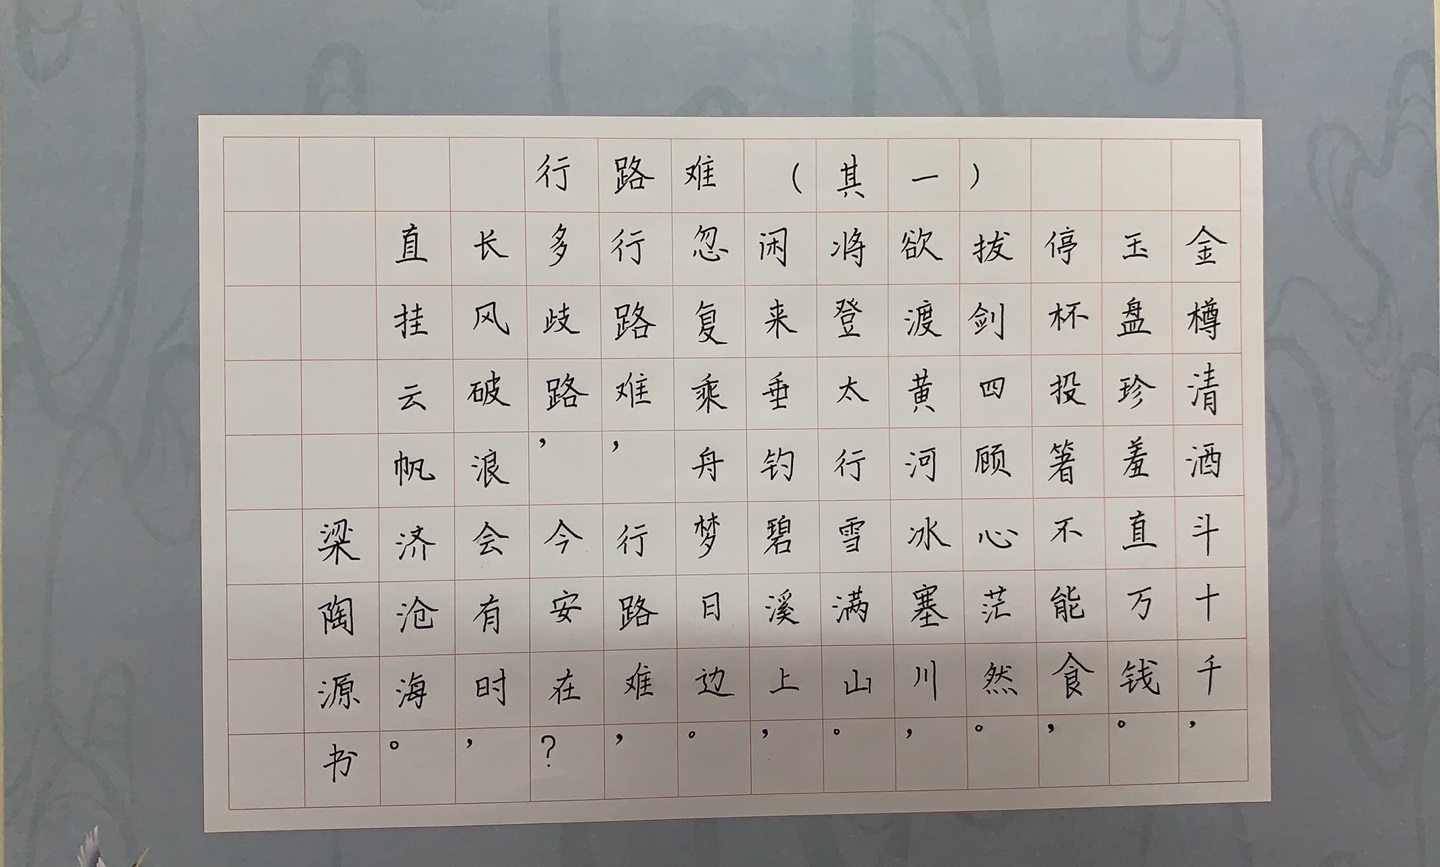 行路难（其一）
金樽清酒斗十千，
玉盘珍羞直万钱。
停杯投箸不能食，
拔剑四顾心茫然。
欲渡黄河冰塞川，
将登太行雪满山。
闲来垂钓碧溪上，
忽复乘舟梦日边。
行路难，行路难，
多歧路，今安在？
长风破浪会有时，
直挂云帆济沧海。
梁陶源书